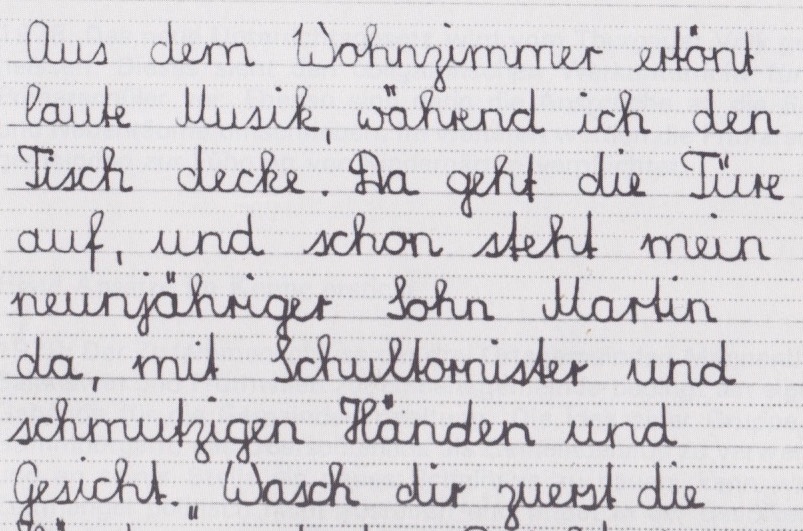 Aus dem Wohnzimmer ertönt
laute Musik, während ich den
Tisch decke. Da geht die Türe
auf, und schon steht mein
neunjähriger Sohn Martin
da, mit Schultornister und
schmutzigen Händen und
Gesicht. „Wasch dir zuerst die